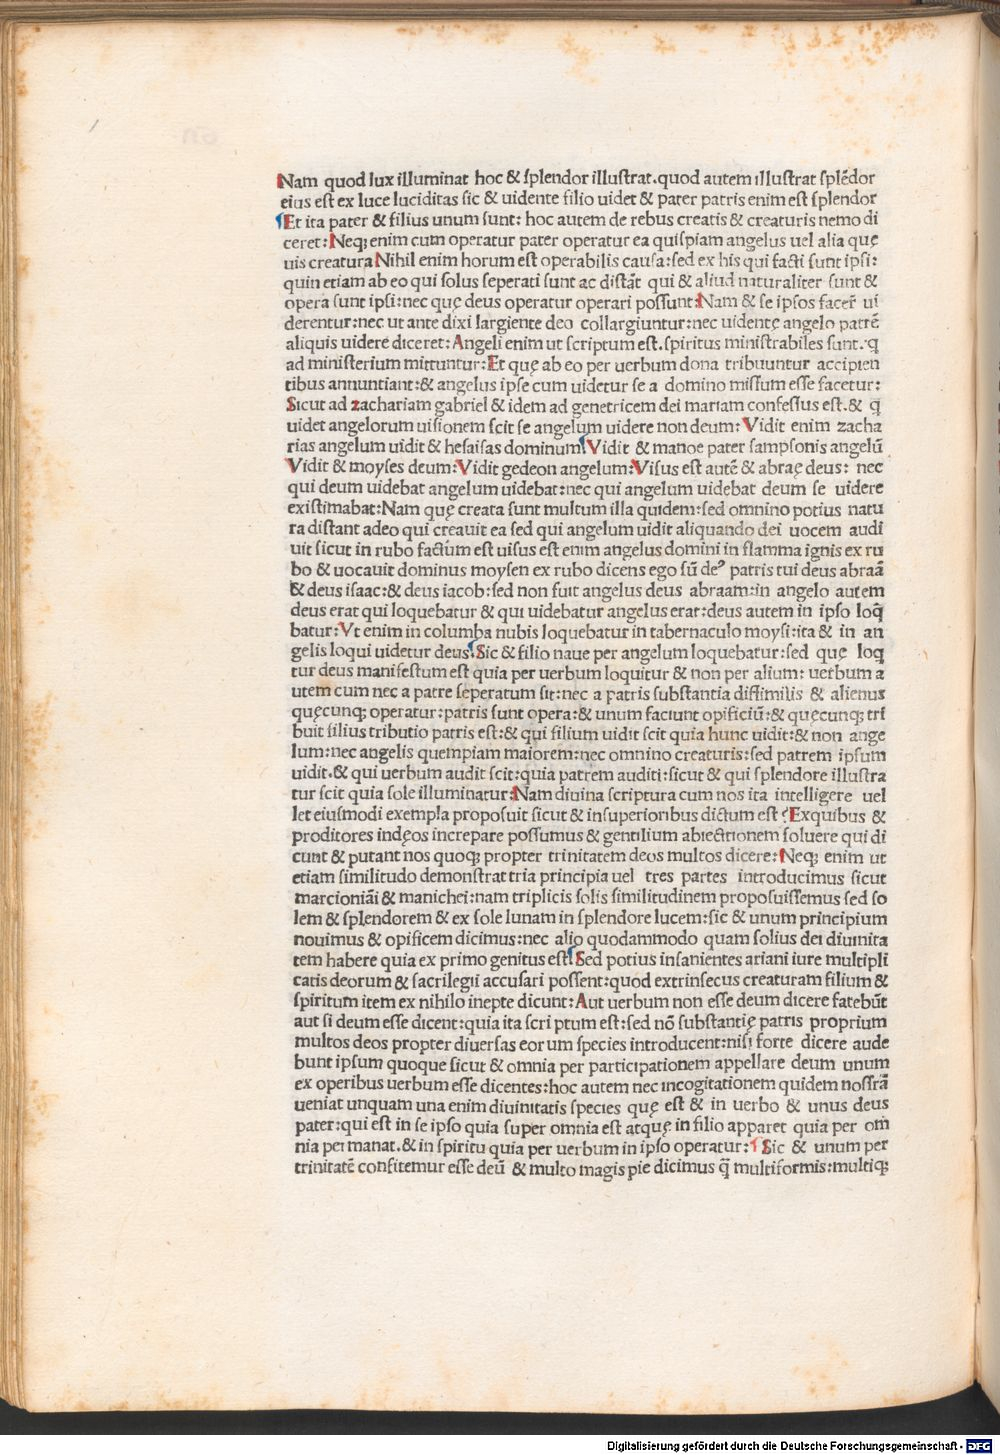 Nam quod lux illuminat hoc & ſplendor illuſtrat.quod autem illuſtrat ſplēdor
eius eſt ex luce luciditas ſic & uidente filio uidet & pater patris enim eſt ſplendor
Et ita pater & filius unum ſunt: hoc autem de rebus creatis & creaturis nemo di
ceret: Neq; enim cum operatur pater operatur ea quiſpiam angelus uel alia quę
uis creatura Nihil enim horum eſt operabilis cauſa:ſed ex his qui facti ſunt ipſi:
quin etiam ab eo qui ſolus ſeperati ſunt ac diſtāt qui & aliud naturaliter ſunt &
opera ſunt ipſi:nec quę deus operatur operari poſſunt:Nam & ſe ipſos facer̄ ui
derentur:nec ut ante dixi largiente deo collargiuntur:nec uidentę angelo patrē
aliquis uidere diceret: Angeli enim ut ſcriptum eſt.ſpiritus miniſtrabiles ſunt.q
ad miniſterium mittuntur: Et quę ab eo per uerbum dona tribuuntur accipien
tibus annuntiant:& angelus ipſe cum uidetur ſe a domino miſſum eſſe facetur:
Sicut ad zachariam gabriel & idem ad genetricem dei mariam confeſſus eſt.& q̄
uidet angelorum uiſionem ſcit ſe angelum uidere non deum: Vidit enim zacha
rias angelum uidit & heſaiſas dominum: Vidit & manoe pater ſampſonis angelū
Vidit & moyſes deum: Vidit gedeon angelum: Viſus eſt autē & abraę deus: nec
qui deum uidebat angelum uidebat:nec qui angelum uidebat deum ſe uidere
exiſtimabat:Nam quę creata ſunt multum illa quidem:ſed omnino potius natu
ra diſtant adeo qui creauit ea ſed qui angelum uidit aliquando dei uocem audi
uit ſicut in rubo factum eſt uiſus eſt enim angelus domini in flamma ignis ex ru
bo & uocauit dominus moyſen ex rubo dicens ego ſū deꝰ patris tui deus abraā
& deus iſaac:& deus iacob:ſed non fuit angelus deus abraam:in angelo autem
deus erat qui loquebatur & qui uidebatur angelus erat:deus autem in ipſo loq̄
batur: Vt enim in columba nubis loquebatur in tabernaculo moyſi:ita & in an
gelis loqui uidetur deus: Sic & filio naue per angelum loquebatur:ſed quę loq
tur deus manifeſtum eſt quia per uerbum loquitur & non per alium: uerbum a
utem cum nec a patre ſeperatum ſit:nec a patris ſubſtantia diſſimilis & alienus
quęcunq; operatur:patris ſunt opera:& unum faciunt opificiū:& quęcunq; tri
buit filius tributio patris eſt:& qui filium uidit ſcit quia hunc uidit:& non ange
lum:nec angelis quempiam maiorem:nec omnino creaturis:ſed patrem ipſum
uidit.& qui uerbum audit ſcit:quia patrem auditi:ſicut & qui ſplendore illuſtra
tur ſcit quia ſole illuminatur:Nam diuina ſcriptura cum nos ita intelligere uel
let eiuſmodi exempla propoſuit ſicut & inſuperioribus dictum eſt Exquibus &
proditores indęos increpare poſſumus & gentilium abiectionem ſoluere qui di
cunt & putant nos quoq; propter trinitatem deos multos dicere: Neq; enim ut
etiam ſimilitudo demonſtrat tria principia uel tres partes introducimus ſicut
marcioniāi & manichei:nam triplicis ſolis ſimilitudinem propoſuiſſemus ſed ſo
lem & ſplendorem & ex ſole lunam in ſplendore lucem:ſic & unum principium
nouimus & opificem dicimus:nec alio quodammodo quam ſolius dei diuinita
tem habere quia ex primo genitus eſt: Sed potius inſanientes ariani iure multipli
catis deorum & ſacrilegii accuſari poſſent:quod extrinſecus creaturam filium &
ſpiritum item ex nihilo inepte dicunt: Aut uerbum non eſſe deum dicere fatebūt
aut ſi deum eſſe dicent:quia ita ſcri ptum eſt:ſed nō ſubſtantię patris proprium
multos deos propter diuerſas eor um ſpecies introducent:niſi forte dicere aude
bunt ipſum quoque ſicut & omnia per participationem appellare deum unum
ex operibus uerbum eſſe dicentes:hoc autem nec incogitationem quidem noſtrā
ueniat unquam una enim diuinitatis ſpecies quę eſt & in uerbo & unus deus
pater:qui eſt in ſe ipſo quia ſuper omnia eſt atquę in filio apparet quia per om̄
nia permanat.& in ſpiritu quia per uerbum in ipſo operatur: Sic & unum per
trinitatē confitemur eſſe deū & multo magis pie dicimus q̄ multiformis:multiq;
Digitalisierung gefördert durch die Deutsche Forschungsgemeinschaft - DFG